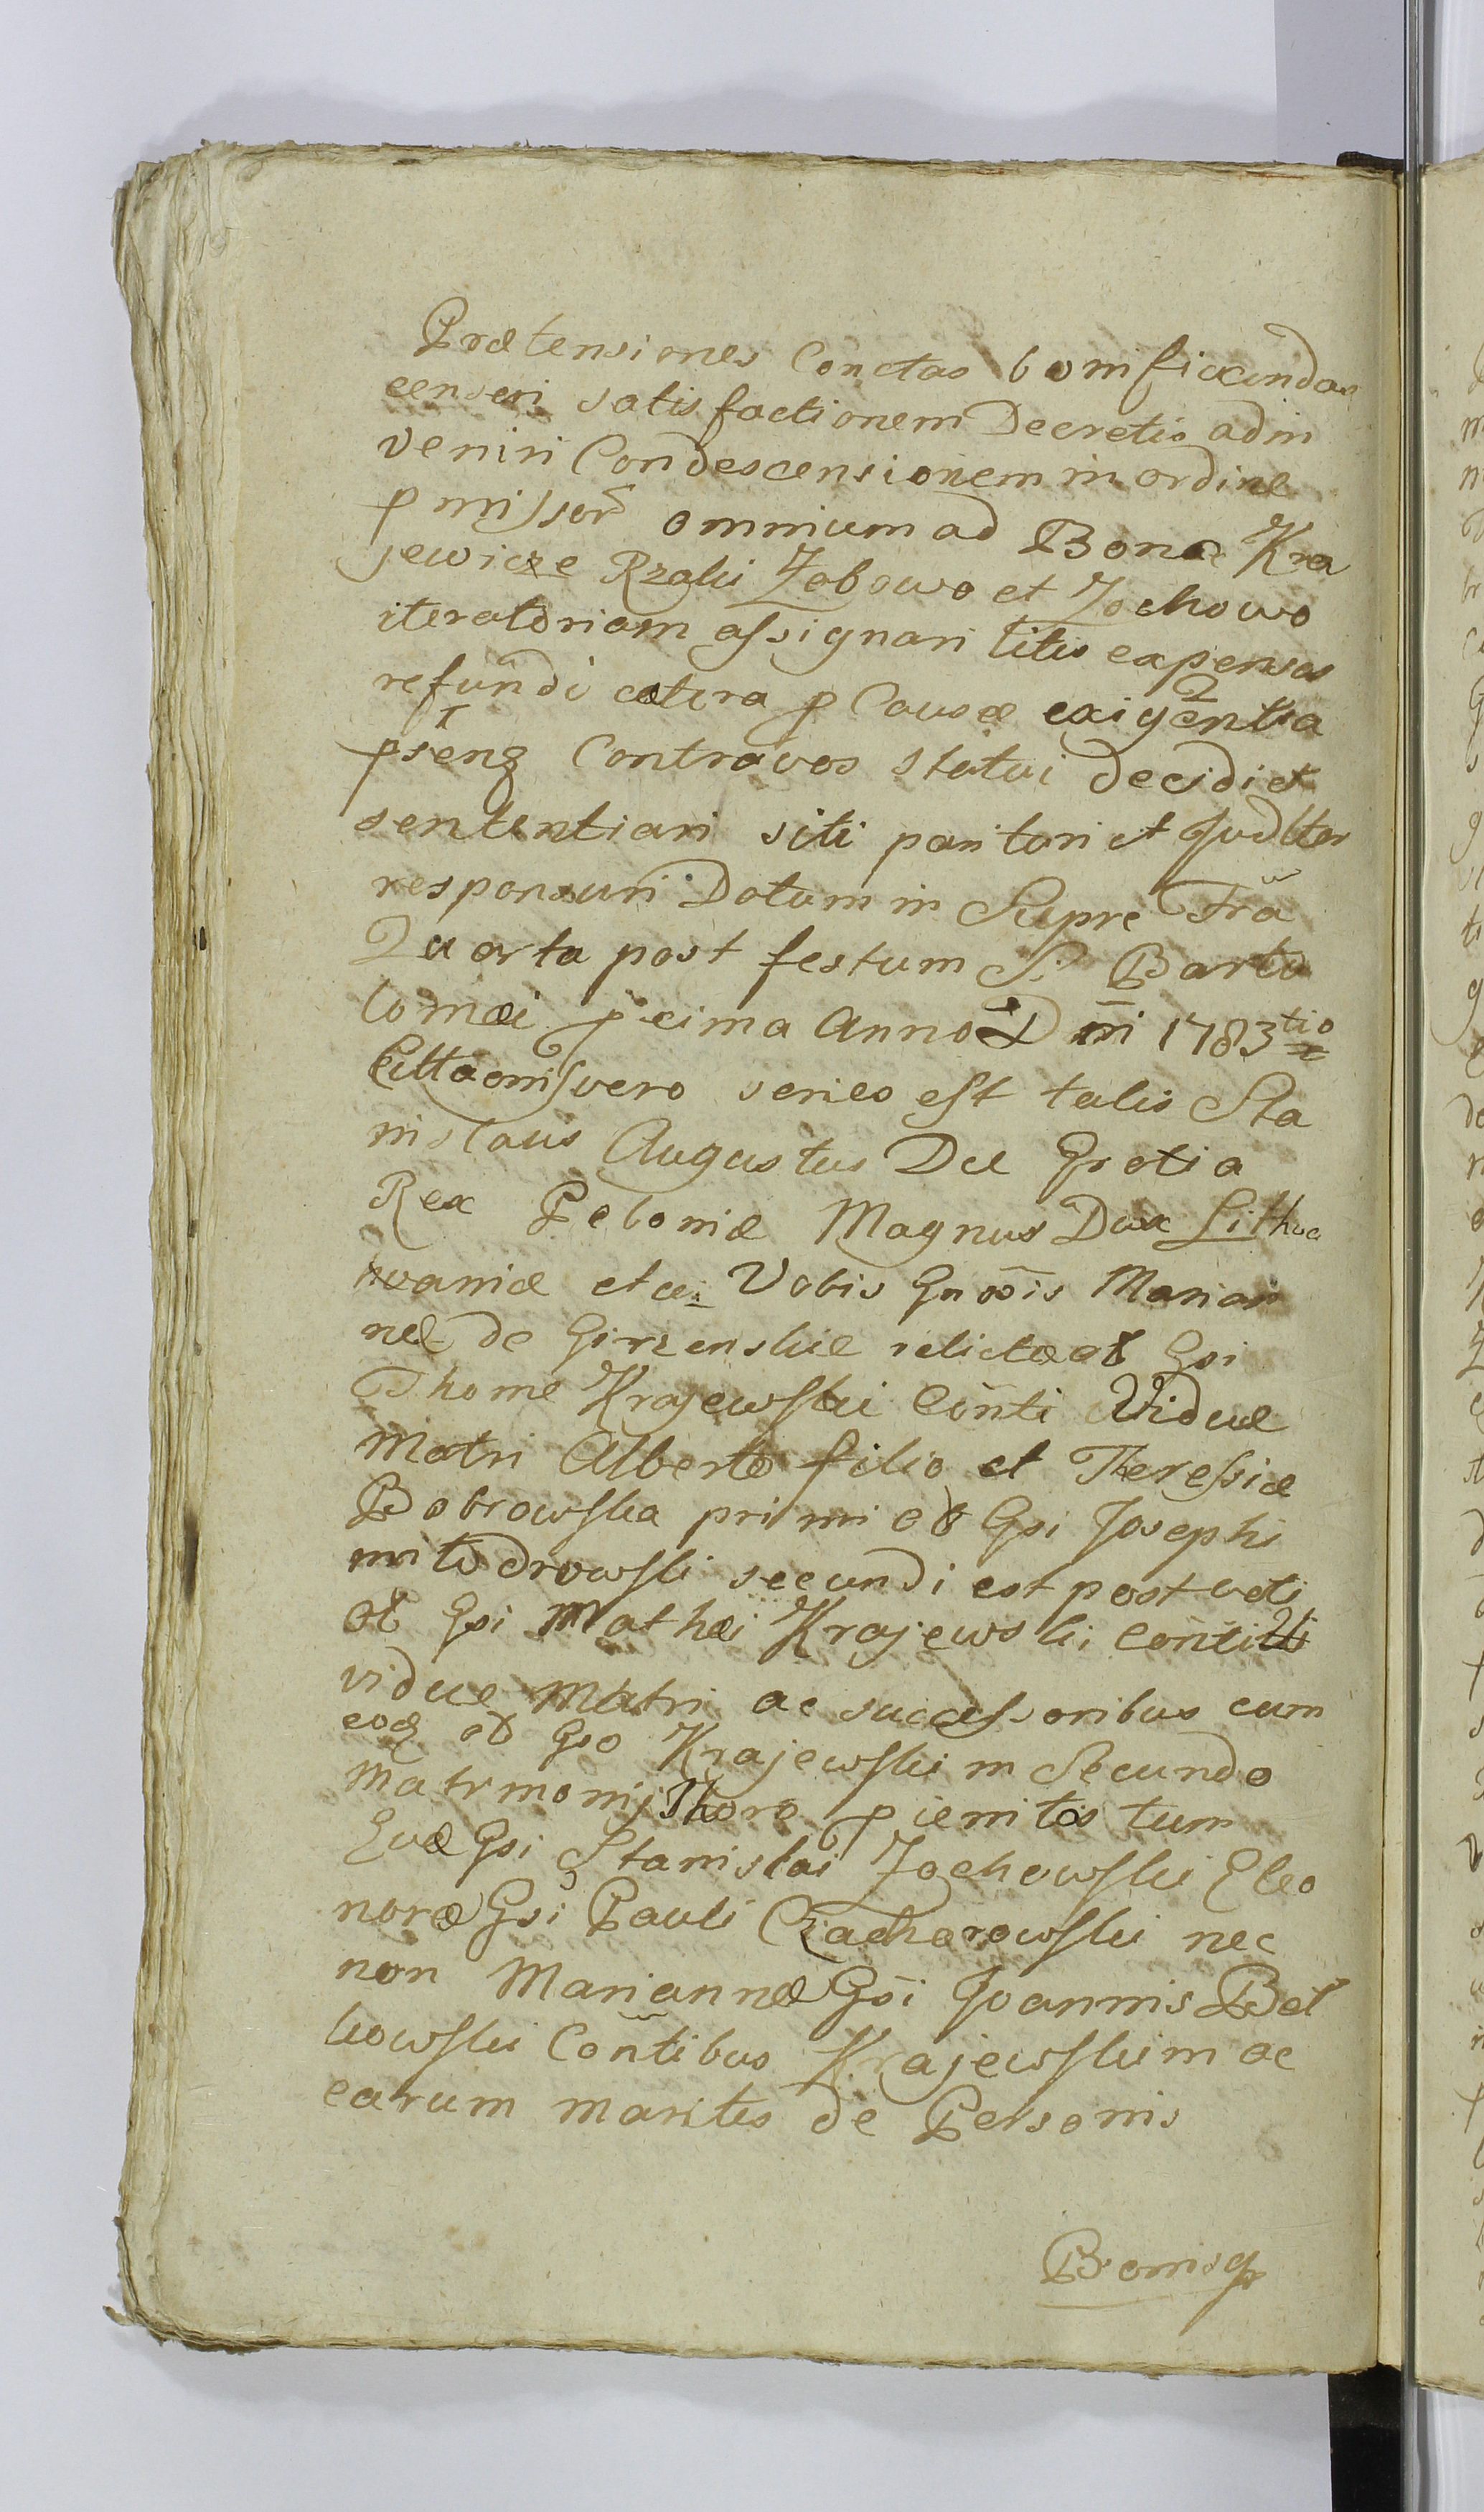 Prætensiones Conctas bonificandas
censeri satisfactionem Decretis adin
veniri Condescensionem in ordine
pmissor̃ omnium ad Bona Kra
jewicze Rzaki Żabowo et Żochowo
iteratoriam assignari litis expensas
refundi cætera p Causæ exigentia
psenq Contra vos statui decidi et
sententiari siti paritari et Judltter
responsuri Datum in Supre Fr̃a
Quarta post festum S. Barto
lomæi pcima Anno Dni 1783tio
Cittaonis vero series est talis Sta
nislaus Augustus Dei Gratia
Rex Poloniæ Magnus Dux Lithua
waniæ etcæ: Vobis Gnõsis Marian
næ de Girzenskie relictæ ol Gsi
Thomæ Krajewski Cõnti Viduæ
Matri Alberto filio et Theressiæ
Bobrowska primi ol Gsi Josephi
Modrowski secundi est post voti
ol Gsi Mathæi Krajewski conti
viduæ Matri ac successoribus cum
eoq ol Gso Krajewski in Secundo
Matrmonij Thoro pcenitos tum
Evæ Gsi Stanislai Żochowski Eleo
noræ Gsi Pauli Czacharowski nec
non Mariannæ Gsi Joannis Bal
kowski Cõntibus Krajewskim ac
earum maritis de Personis
Bomsq